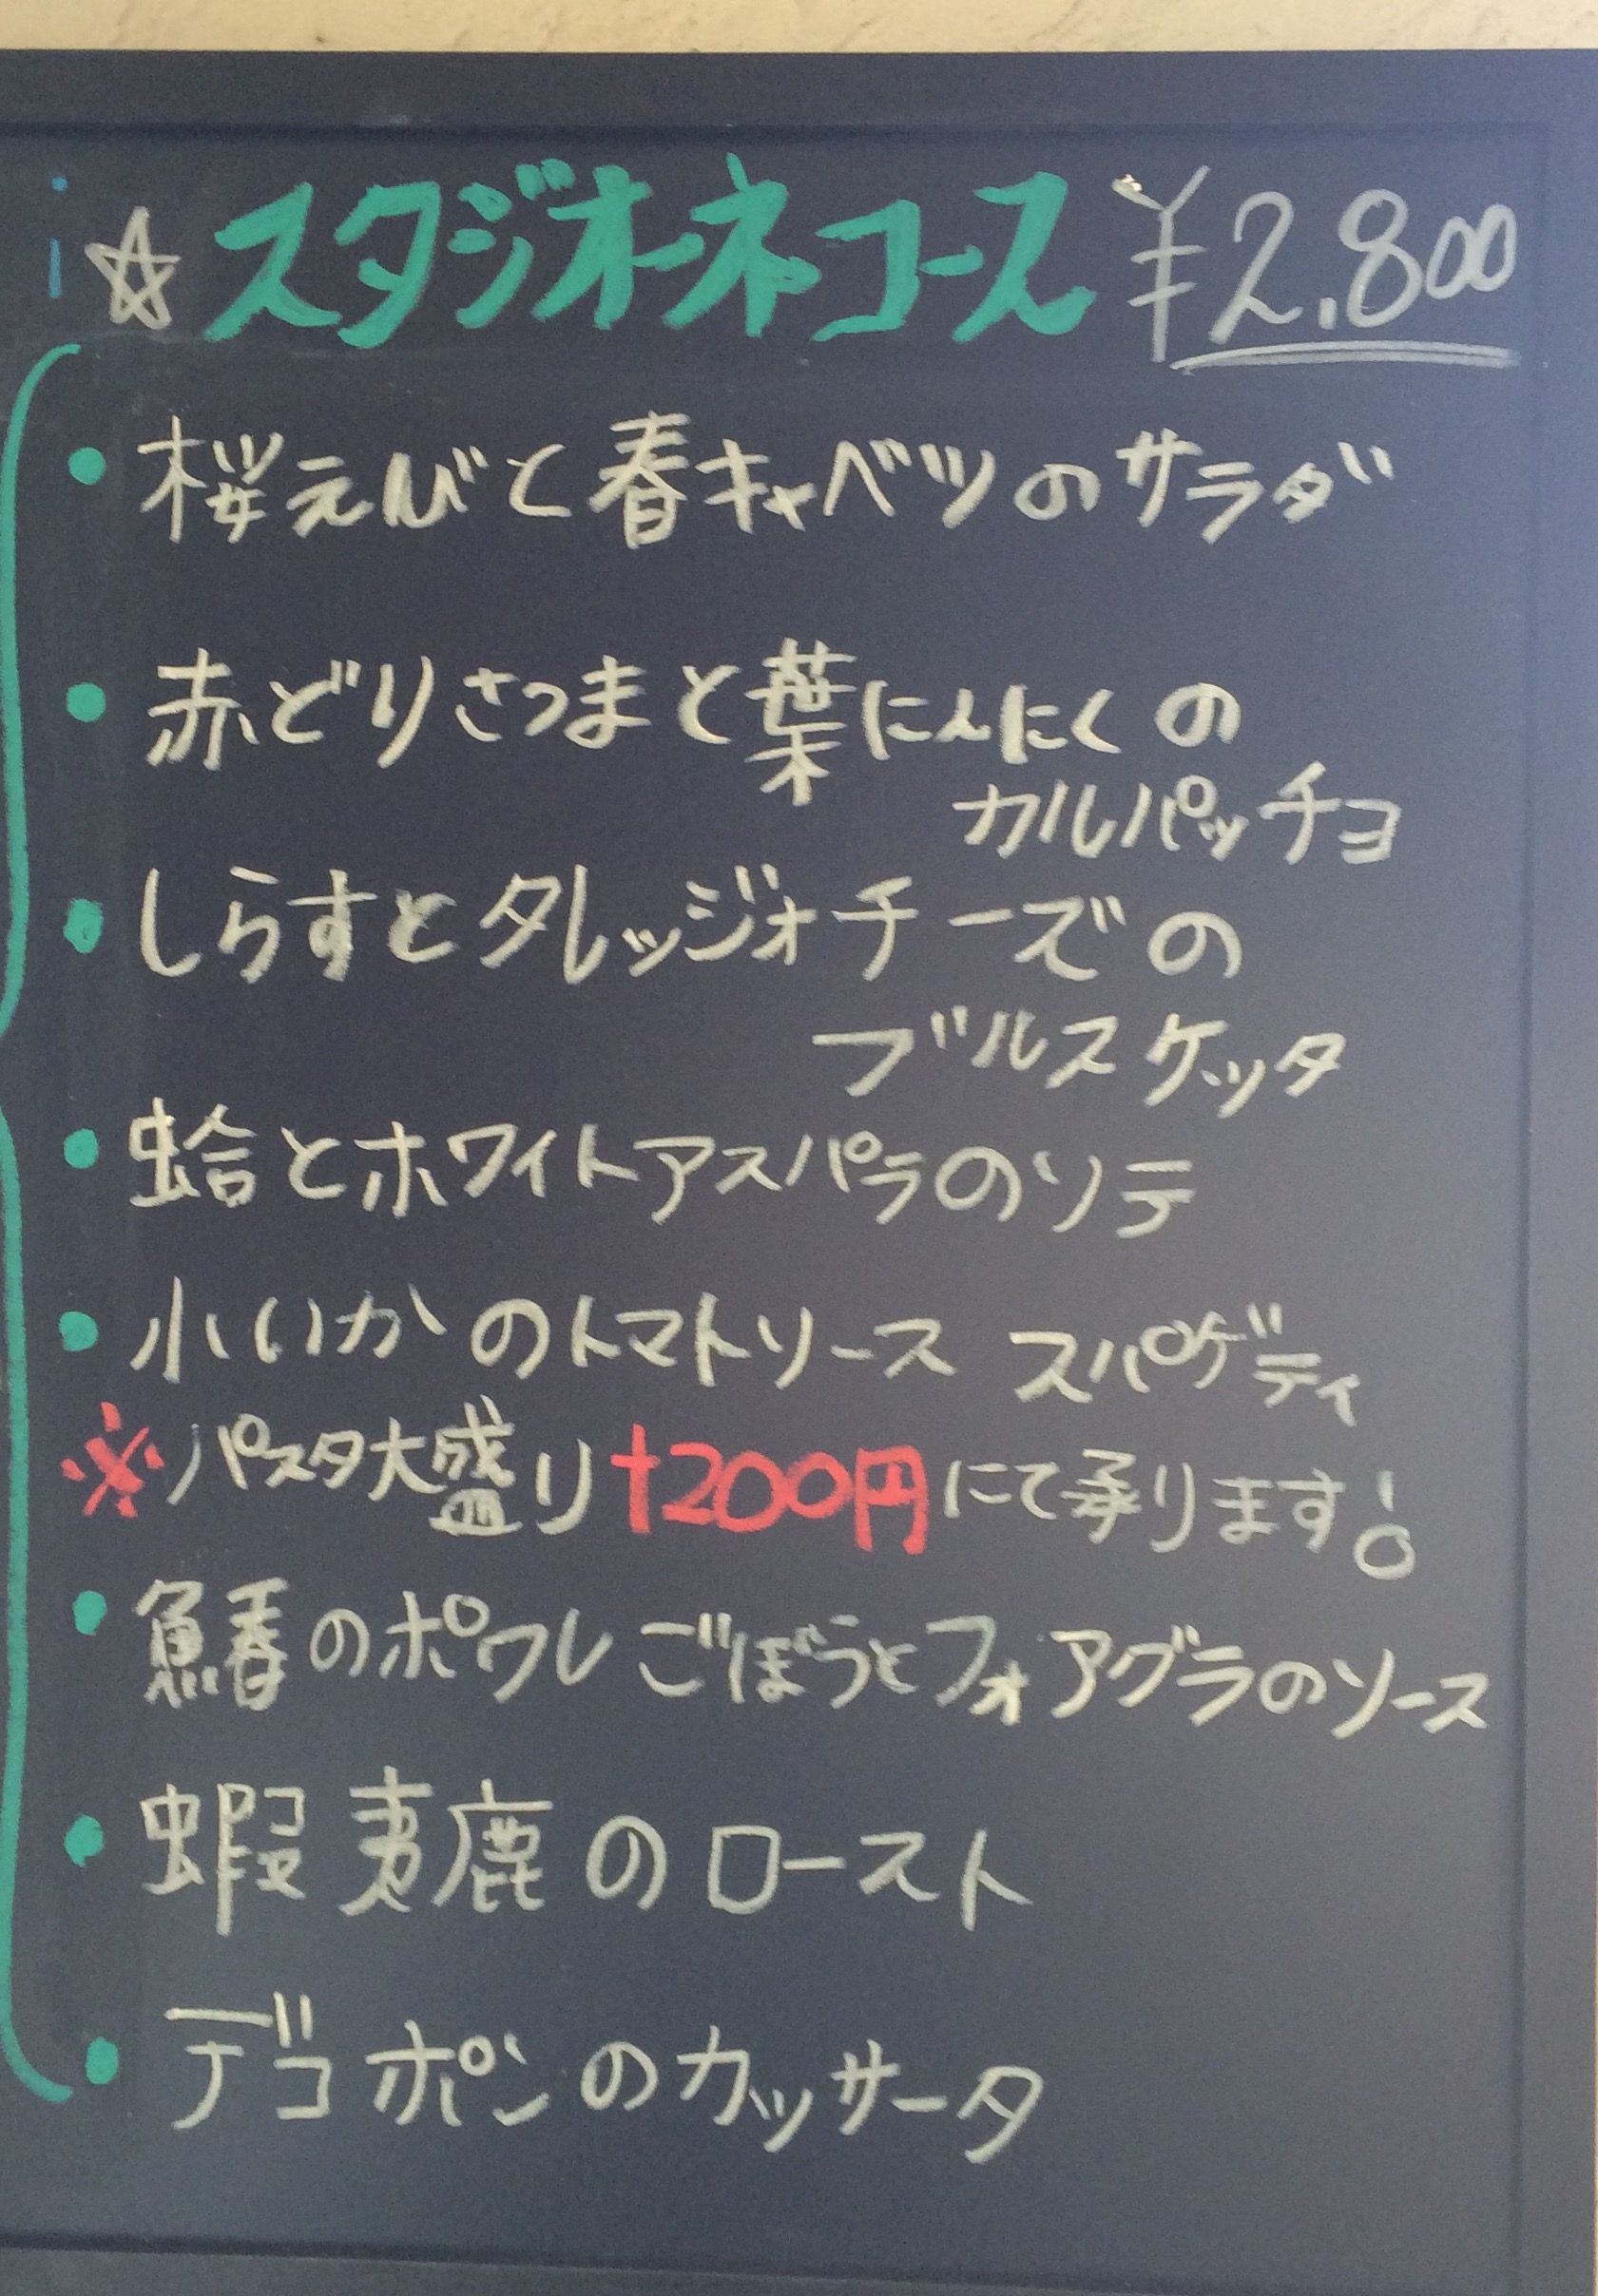 ☆スタジオーネコース ¥2,800
・桜えびと春キャベツのサラダ
・赤どりさつまと葉にんにくの
カルパッチョ
・しらすとタレッジォチーズの
ブルスケッタ
・蛤とホワイトアスパラのソテー
・小いかのトマトソース スパゲティ
※パスタ大盛り+200円にて承ります!
・鰆のポワレ ごぼうとフォアグラのソース
・蝦夷鹿のロースト
・デコポンのカッサータ